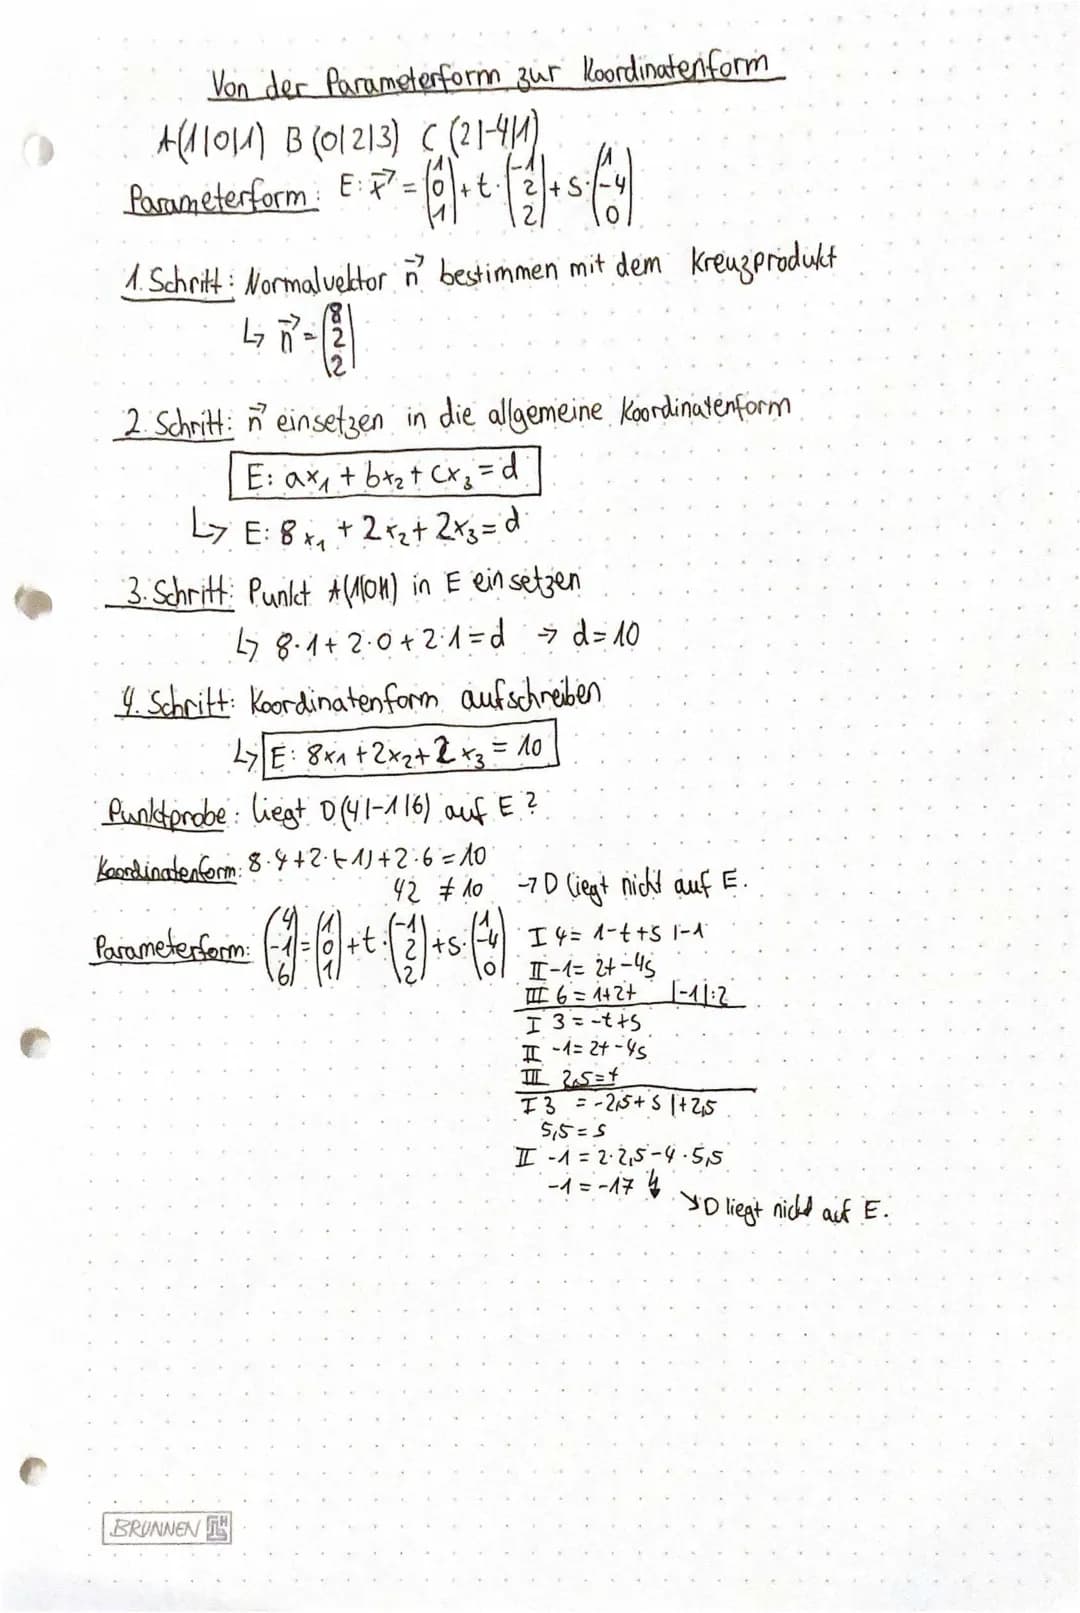 Von der Parameterform zur Koordinatenform
A(1|0|1) B(0|2|3) C(2|-4|1)
Parameterform: E: x⃗ = (1 0 1) + t · (-1 2 2) + s · (1 -4 0)
1. Schritt: Normalvektor n⃗ bestimmen mit dem Kreuzprodukt
↳ n⃗ = (8 2 2)
2. Schritt: n⃗ einsetzen in die allgemeine Koordinatenform
E: ax₁ + bx₂ + cx₃ = d
↳ E: 8x₁ + 2x₂ + 2x₃ = d
3. Schritt: Punkt A(1|0|1) in E einsetzen
↳ 8·1 + 2·0 + 2·1 = d → d = 10
4. Schritt: Koordinatenform aufschreiben
↳ E: 8x₁ + 2x₂ + 2x₃ = 10
Punktprobe: liegt D(4|-1|6) auf E?
Koordinatenform: 8·4 + 2·(-1) + 2·6 = 10
42 ≠ 10 → D liegt nicht auf E.
Parameterform: (4 -1 6) = (1 0 1) + t · (-1 2 2) + s · (1 -4 0)
I 4 = 1 - t + s |-1
II -1 = 2t - 4s
III 6 = 1 + 2t |-1|:2
I 3 = -t + s
II -1 = 2t - 4s
III 2,5 = t
I 3 = -2,5 + s |+2,5
5,5 = s
II -1 = 2·2,5 - 4·5,5
-1 = -17 ↯
↘ D liegt nicht auf E.
BRUNNEN